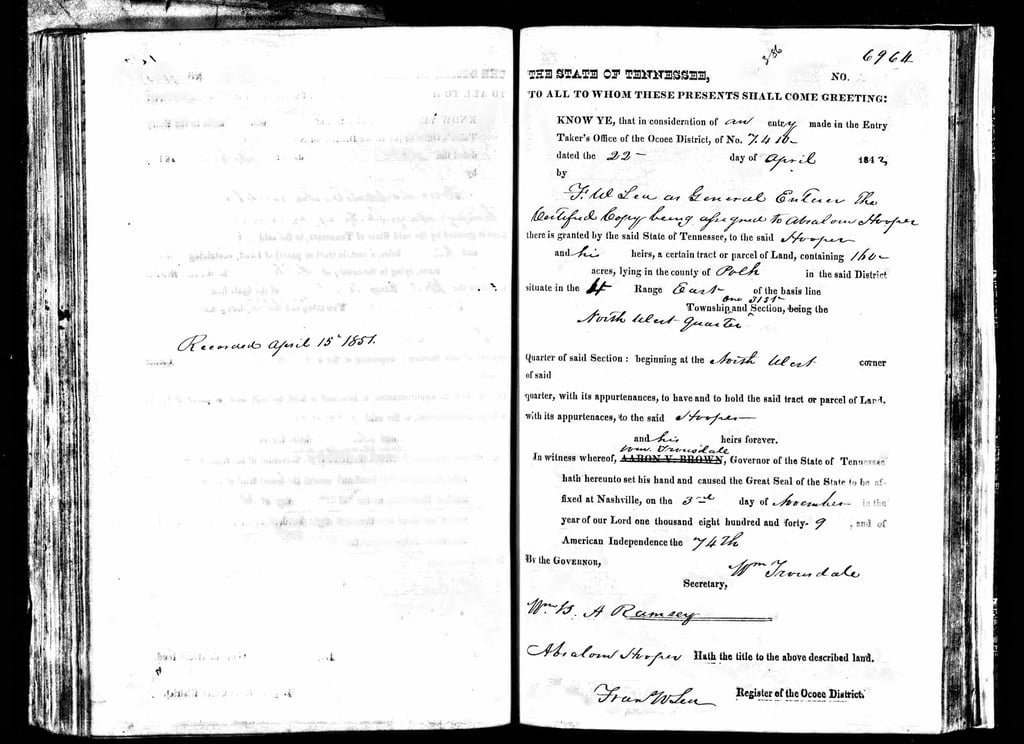 Recorded April 15th 1851.
6964
THE STATE OF TENNESSEE, NO.
TO ALL TO WHOM THESE PRESENTS SHALL COME GREETING:
KNOW YE, that in consideration of an entry made in the Entry
Taker's Office of the Ocoee District, of No. 7410–
dated the 22– day of April 1842,
by
F. W Lea as General Enterer The
Certified Copy being assigned to Absalom Hooper
there is granted by the said State of Tennessee, to the said Hooper
and his heirs, a certain tract or parcel of Land, containing 160–
acres, lying in the county of Polk in the said District
situate in the 4 Range East of the basis line
one 31st
Township and Section, being the
North West Quarter
Quarter of said Section: beginning at the North West corner
of said
quarter, with its appurtenances, to have and to hold the said tract or parcel of Land,
with its appurtenaces, to the said Hooper
and his heirs forever.
Wm. Trousdale
In witness whereof, AARON V. BROWN, Governor of the State of Tennessee
hath hereunto set his hand and caused the Great Seal of the State to be af-
fixed at Nashville, on the 3rd day of November in the
year of our Lord one thousand eight hundred and forty- 9 , and of
American Independence the 74th
By the GOVERNOR,
Wm Trousdale
Secretary,
Wm B. A Ramsey
Absalom Hooper Hath the title to the above described land.
Register of the Ocoee District.